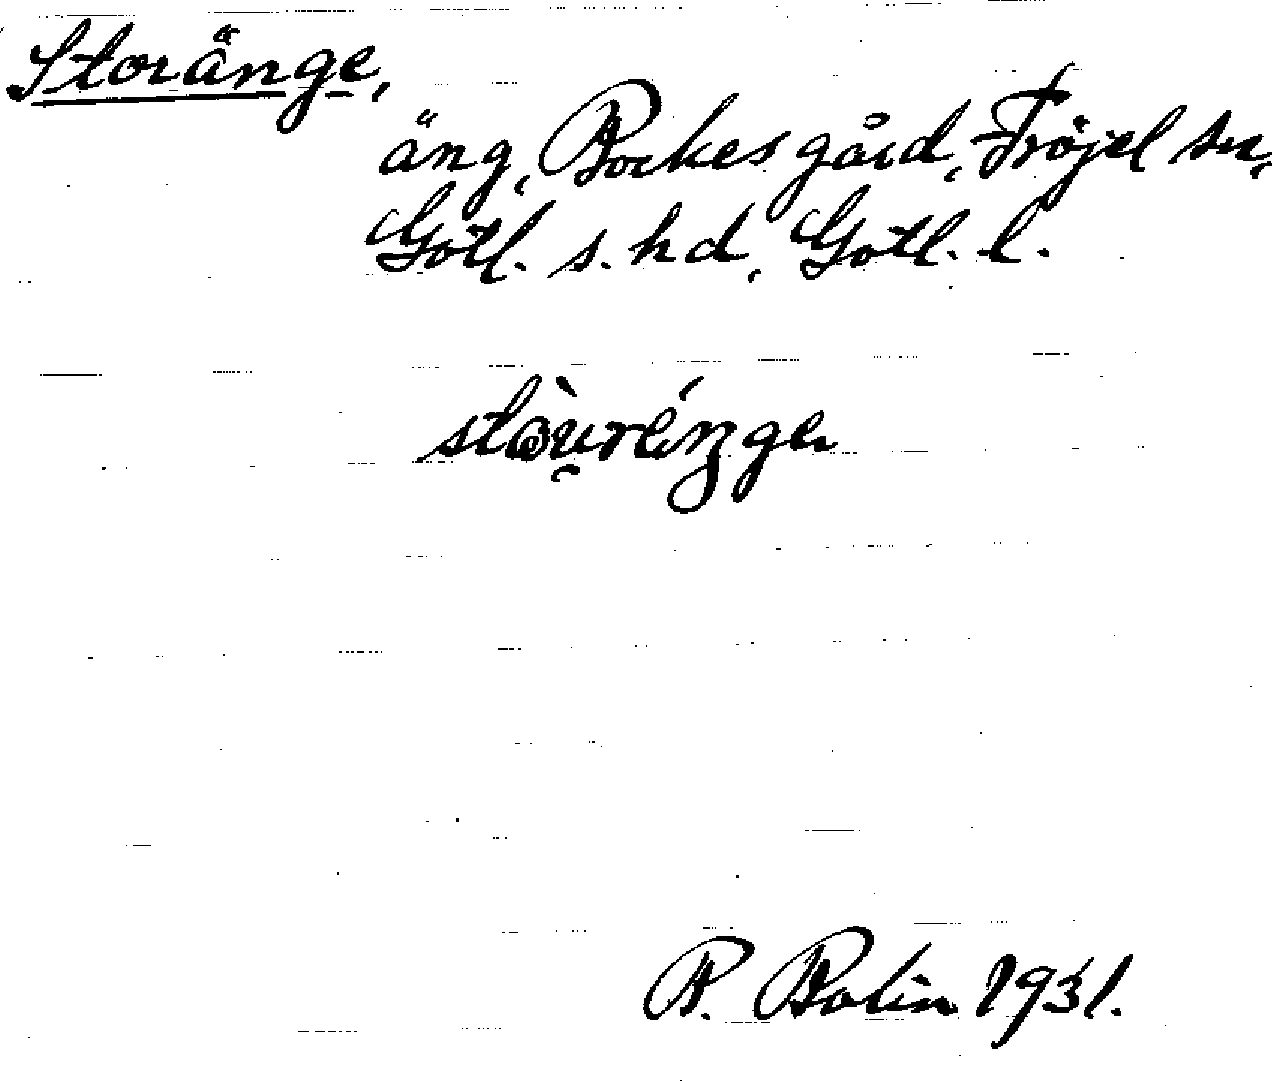 Storänge,
äng, Bockes gård, Fröjel sn,
Gotl. s. hd, Gotl. l.
R. Bolin 1931.